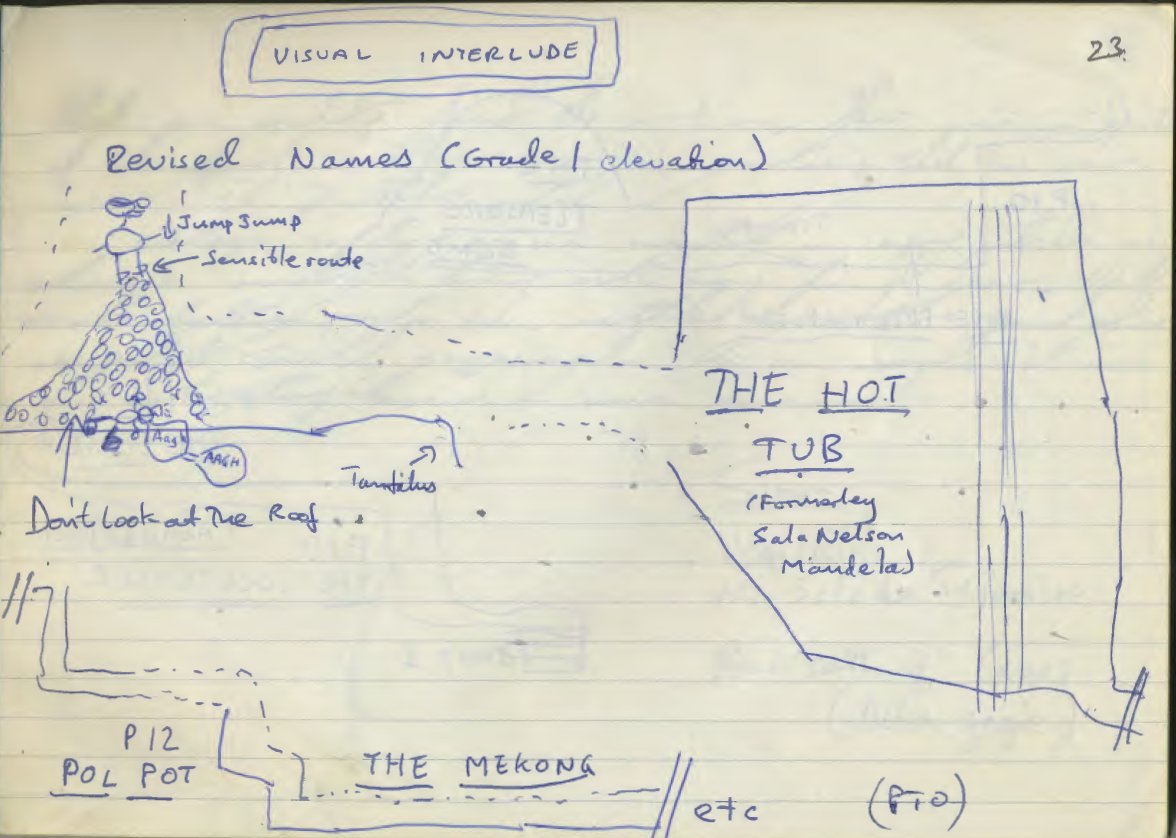 VISUAL INTERLUDE
23.
Revised Names (Grade / elevation)
Jump Jump
Sensible route
Aagh
AAGH
Tantalus
Don't Look at The Roof
THE HOT
TUB
(Formerley
Sala Nelson
Mandela)
P12
POL POT
THE MEKONG
etc
(PTO)